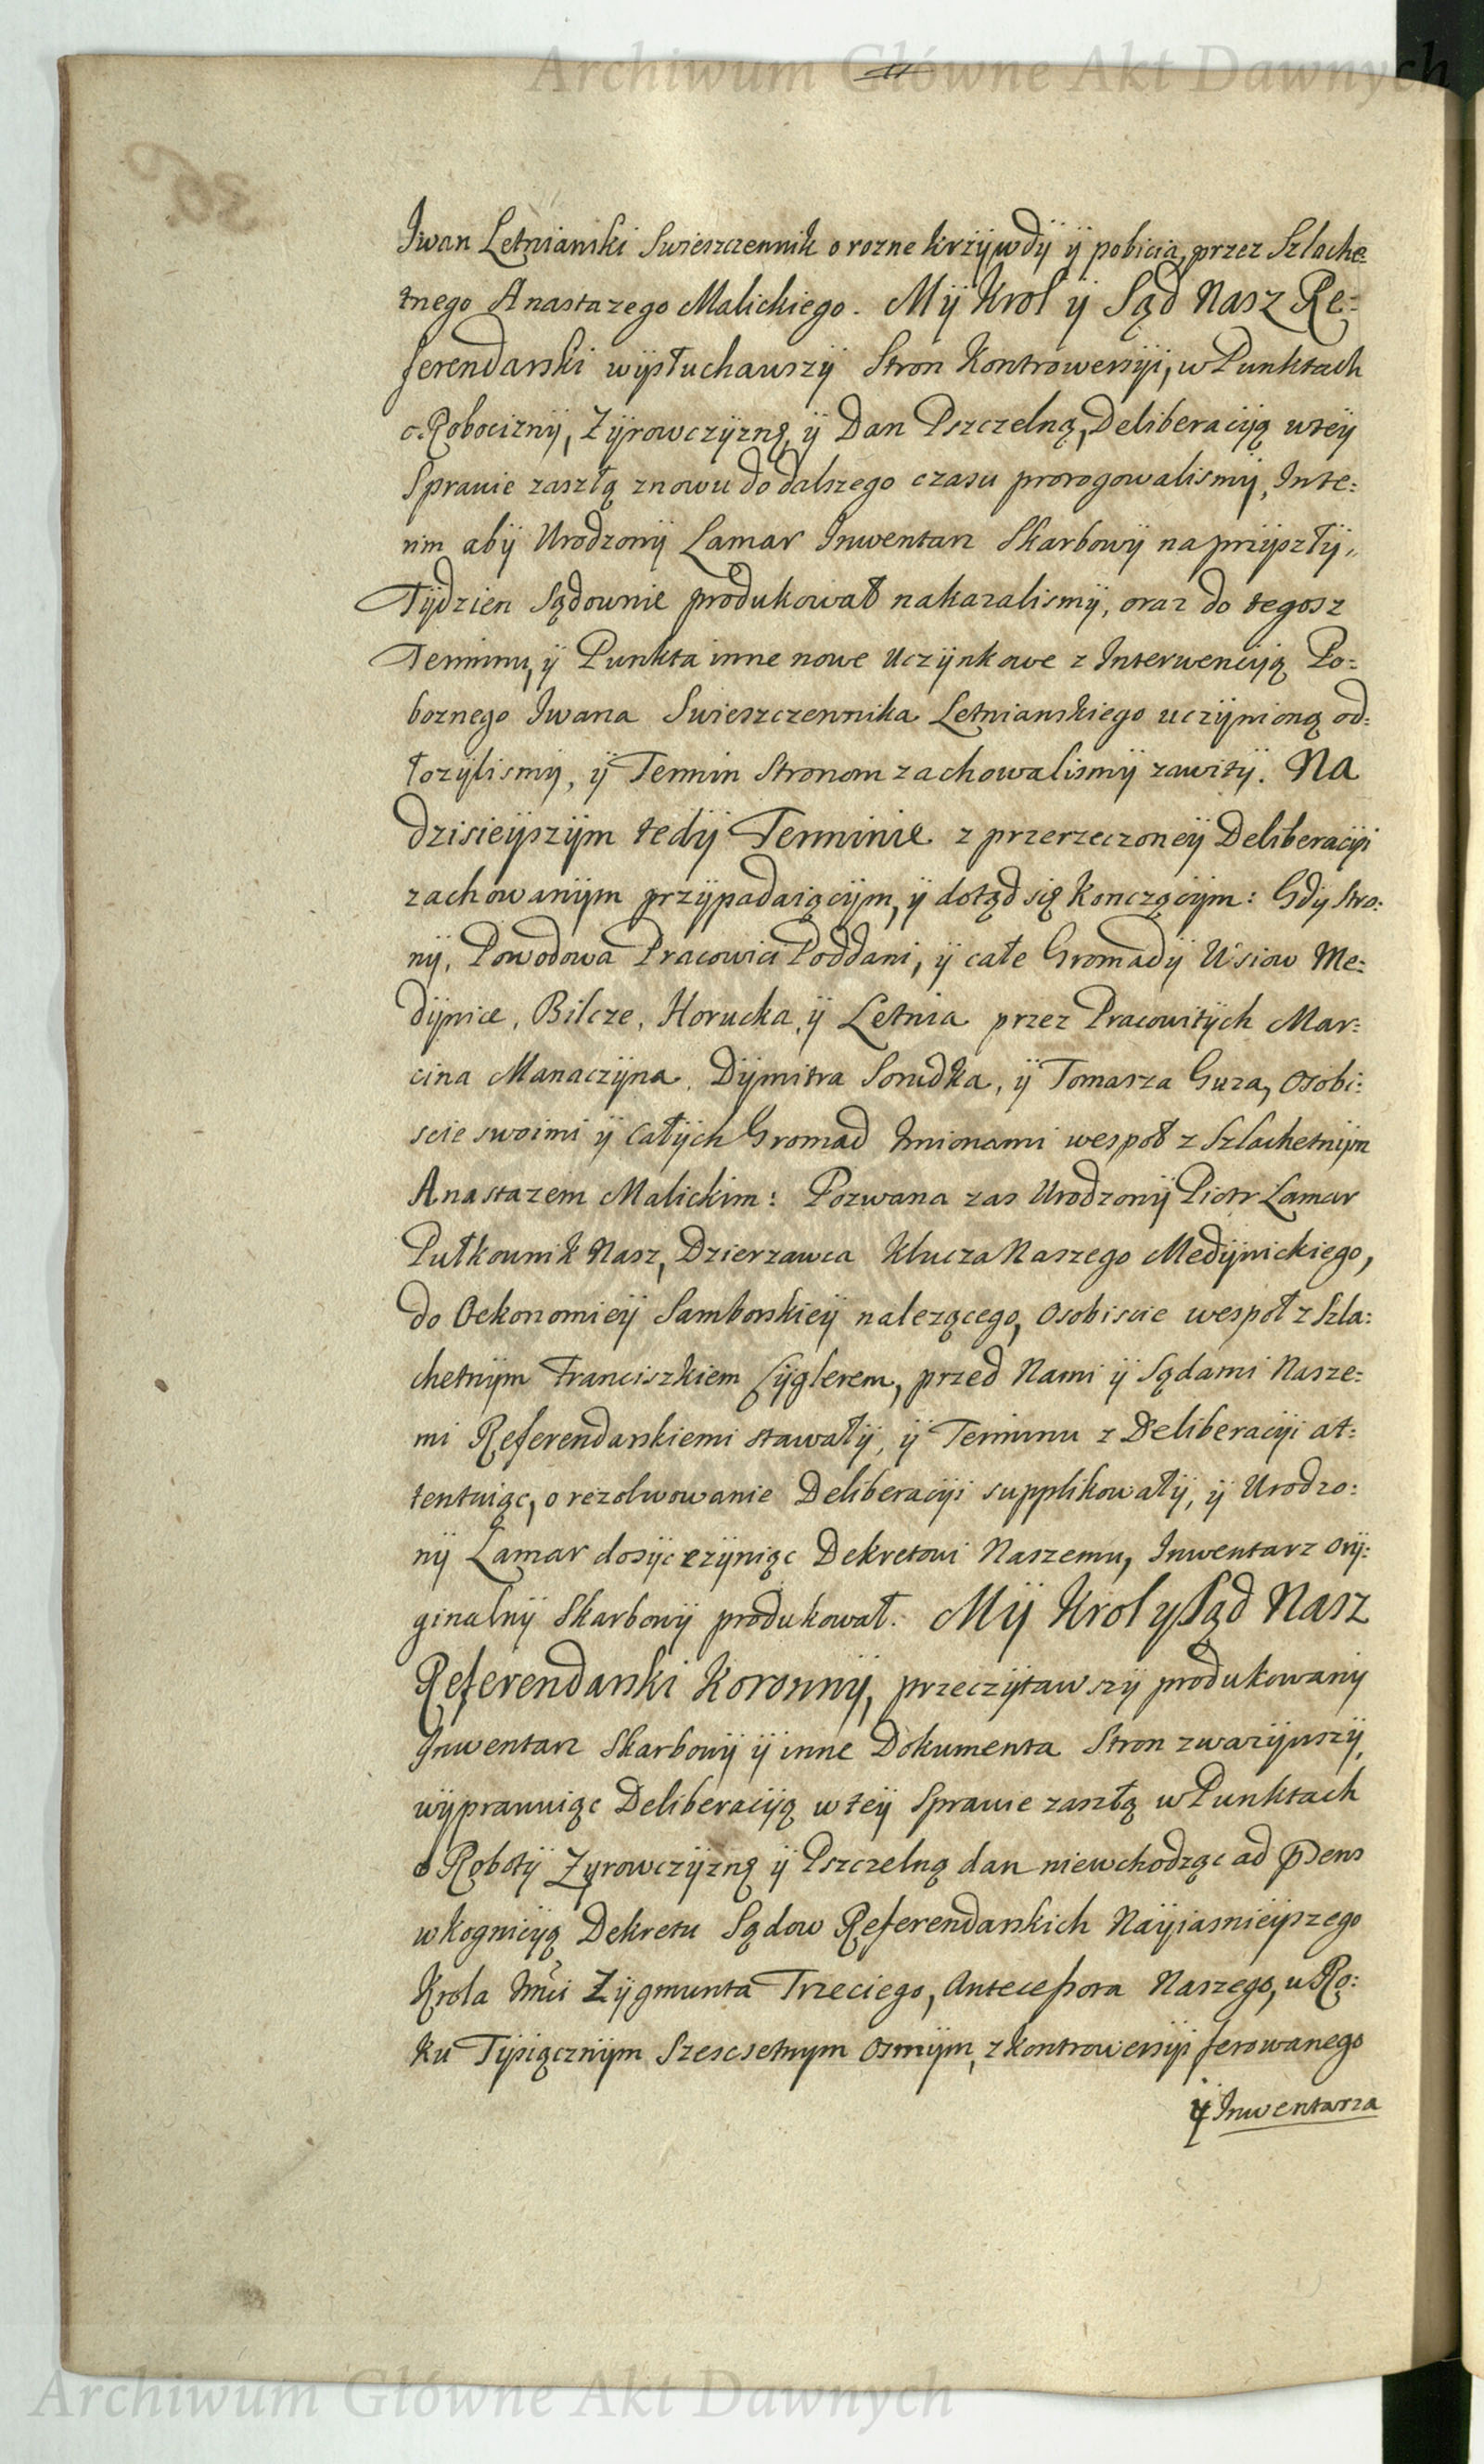 Archiwum Główne Akt Dawnych
Iwan Letnianski Swieszczennik o rozne krzÿwdÿ ÿ pobicia, przez Szlache=
tnego Anastazego Malickiego. Mÿ Krol ÿ Sąd Nasz Re=
ferendarski wÿsłuchawszÿ Stron Kontrowersÿi, w Punktach
o Robociznÿ, Zÿrowczÿznę, ÿ Dan Pszczelną, Deliberacÿą w teÿ
Sprawie zaszłą znowu do dalszego czasu prorogowalismÿ, Inte=
rim abÿ Urodzonÿ Lamar Inwentarz Skarbowÿ na przÿszłÿ
Tÿdzien sądownie produkował nakazalismÿ, oraz do tegosz
Terminu, ÿ Punkta inne nowe uczÿnkowe z Interwencÿą Po=
boznego Iwana Swieszczennika Letnianskiego uczÿnioną od=
łozÿlismÿ, ÿ Termin Stronom zachowalismÿ zawitÿ. Na
dzisieÿszÿm tedÿ Terminie z przerzeczoneÿ Deliberacÿi
zachowanÿm przÿpadaiącÿm, ÿ dotąd się kończącÿm: Gdÿ Stro=
nÿ, Powodowa Pracowici Poddani, ÿ całe Gromadÿ Wsiow Me=
dÿnice, Bilcze, Horucka, ÿ Letnia przez Pracowitÿch Mar=
cina Manaczÿna, Dÿmitra Sorudka, ÿ Tomasza Guza, osobi=
scie swoimi ÿ całÿch Gromad Imionami wespoł z Szlachetnÿm
Anastazem Malickim: Pozwana zas Urodzonÿ Piotr Lamar
Pułkownik Nasz, Dzierzawca Klucza Naszego Medÿnickiego,
do Oekonomieÿ Samborskieÿ nalezącego, osobiscie wespoł z Szla=
chetnÿm Franciszkiem Cÿglerem, przed Nami ÿ Sądami Nasze=
mi Referendarskiemi stawałÿ, ÿ Terminu z Deliberacÿi at=
tentuiąc, o rezolwowanie Deliberacÿi supplikowałÿ, ÿ Urodzo=
nÿ Lamar dosÿc czÿniąc Dekretowi Naszemu, Inwentarz orÿ=
ginalnÿ Skarbowÿ produkował. Mÿ Krol y Sąd Nasz
Referendarski Koronnÿ, przeczÿtawszÿ produkowanÿ
Inwentarz Skarbowÿ ÿ inne Dokumenta Stron zwazÿwszÿ,
wÿprawuiąc Deliberacÿą w teÿ Sprawie zaszłą w Punktach
o Robotÿ Zyrowczÿznę ÿ Pszczelną dan niewchodząc ad Prens
w kognicÿą Dekretu Sądow Referendarskich Naÿiasnieÿszego
Krola Jmći Zÿgmunta Trzeciego, Antecessora Naszego, w Ro=
ku Tÿsiącznÿm Szescsetnym osmÿm, z kontrowersÿi ferowanego
ÿ Inwentarza
Archiwum Główne Akt Dawnych